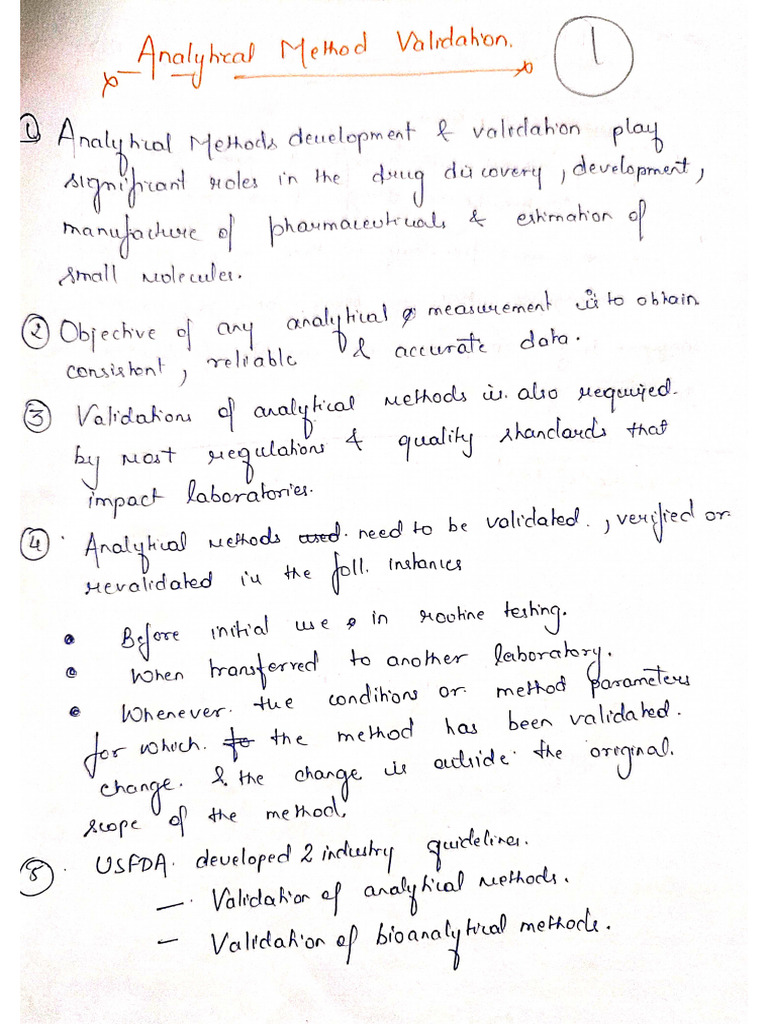 Analytical Method Validation.
1
1) Analytical Methods development & validation play
significant roles in the drug discovery, development,
manufacture of pharmaceuticals & estimation of
small molecules.
2 Objective of any analytical measurement is to obtain
consistent, reliable & accurate data.
3 Validations of analytical methods is also required
by most regulations & quality standards that
impact laboratories.
4 Analytical methods used need to be validated, verified or
revalidated in the foll. instances
• Before initial use, in routine testing.
• When transferred to another laboratory.
• Whenever the conditions or method parameters
for which to the method has been validated
change & the change is outside the original
scope of the method.
5 USFDA developed 2 industry guidelines.
— Validation of analytical methods.
— Validation of bioanalytical methods.